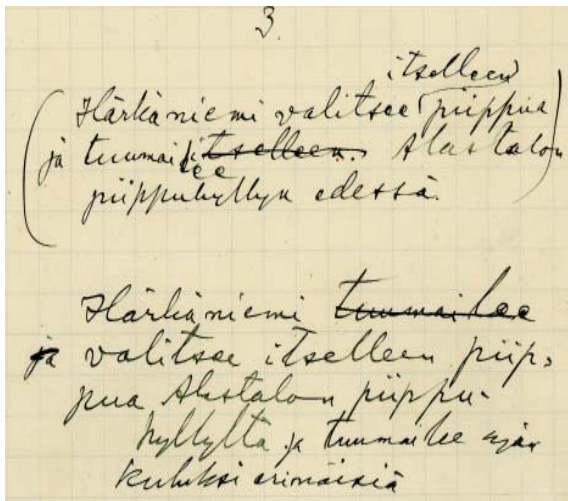 3.
itselleen
Härkäniemi valitsee piippua
ja tuumailee itselleen. Alastalon
piippuhyllyn edessä.
Härkäniemi tuumailee
ja valitsee itselleen piip-
pua Alastalon piippu-
hyllyltä ja tuumailee ajan
kuluksi erinäisiä